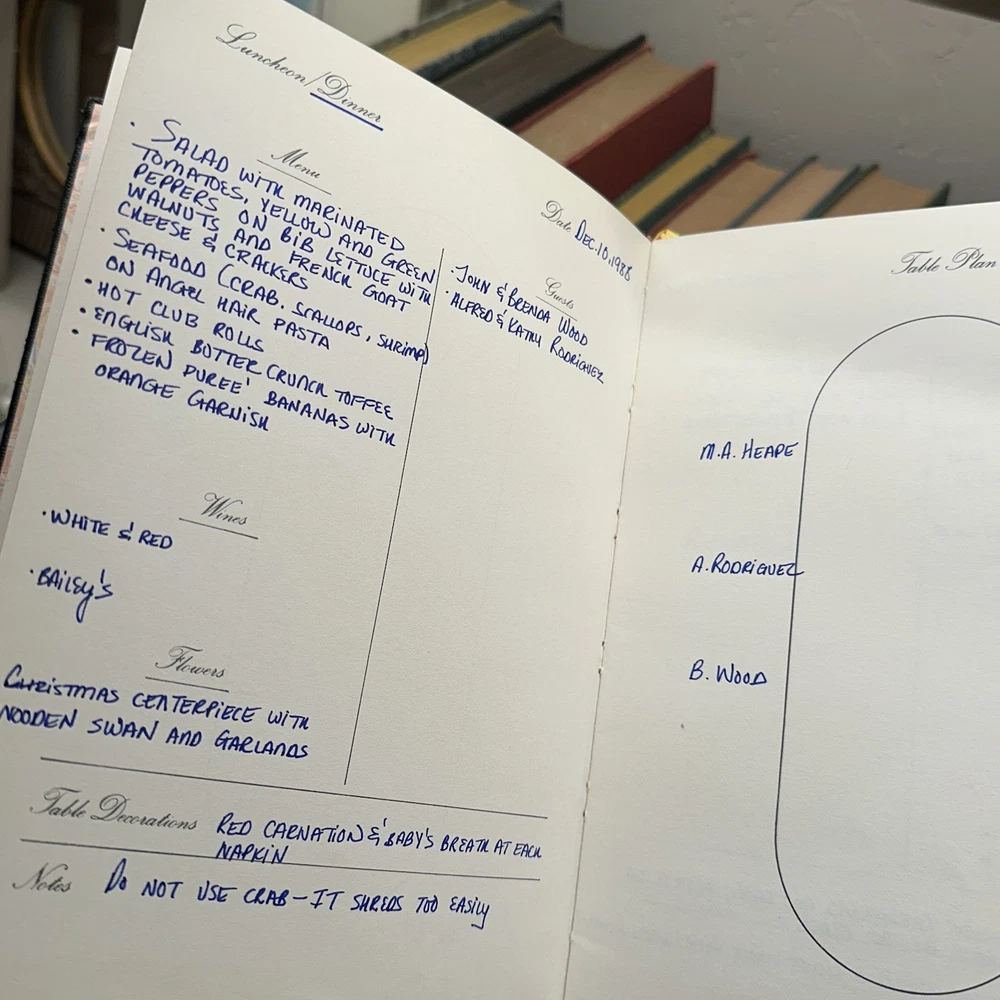 Luncheon/Dinner
Menu
• SALAD WITH MARINATED
TOMATOES, YELLOW AND GREEN
PEPPERS ON BIB LETTUCE WITH
WALNUTS AND FRENCH GOAT
CHEESE & CRACKERS
• SEAFOOD (CRAB, SCALLOPS, SHRIMP)
ON ANGEL HAIR PASTA
• HOT CLUB ROLLS
• ENGLISH BUTTER CRUNCH TOFFEE
• FROZEN PUREE' BANANAS WITH
ORANGE GARNISH
Wines
• WHITE & RED
• BAILEY'S
Flowers
CHRISTMAS CENTERPIECE WITH
WOODEN SWAN AND GARLANDS
Date DEC. 10, 1988
Guests
• JOHN & BRENDA WOOD
• ALFRED & KATHY RODRIGUEZ
Table Decorations RED CARNATION & BABY'S BREATH AT EACH
NAPKIN
Notes DO NOT USE CRAB – IT SHREDS TOO EASILY
Table Plan
M.A. HEAPE
A. RODRIGUEZ
B. WOOD